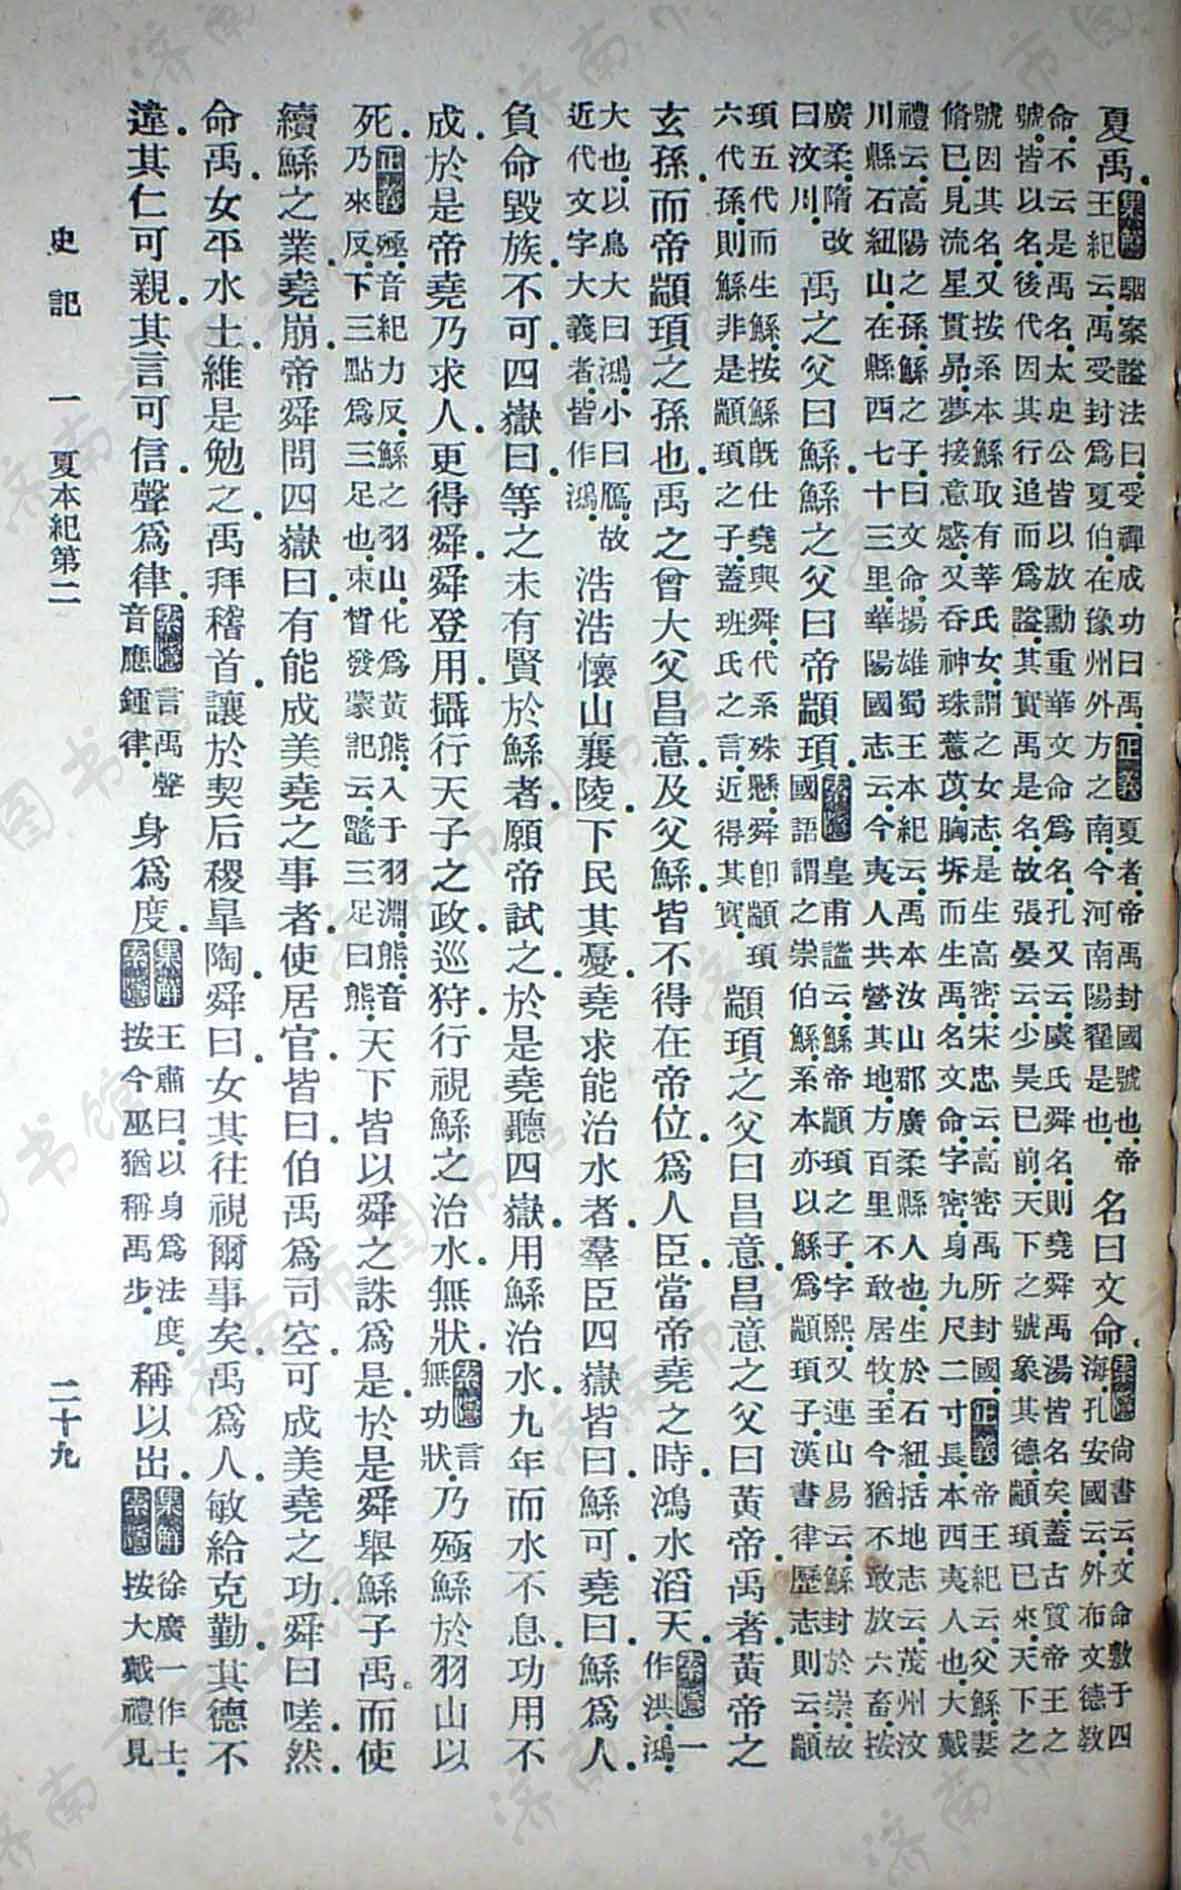 夏禹。集解駰案謚法曰。受禪成功曰禹。正義夏者。帝禹封國號也。帝王紀云。禹受封爲夏伯。在豫州外方之南。今河南陽翟是也。名曰文命。索隱尙書云。文命敷于四海。孔安國云。外布文德教
命。不云是禹名。太史公皆以放勳重華文命爲名。孔又云。虞氏舜名。則堯舜禹湯皆名矣。蓋古質帝王之號。皆以名。後代因其行追而爲謚。其實禹是名。故張晏云。少昊已前。天下之號象其德。顓頊已來。天下之
號因其名。又按系本鯀取有莘氏女。謂之女志。是生高密。宋忠云。高密禹所封國。正義帝王紀云。父鯀妻脩已。見流星貫昴。夢接意感。又吞神珠薏苡。胸坼而生禹。名文命。字密。身九尺二寸長。本西夷人也。大戴
禮云。高陽之孫。鯀之子。曰文命。揚雄蜀王本紀云。禹本汶山郡廣柔縣人也。生於石紐。括地志云。茂州汶川縣石紐山。在縣西七十三里。華陽國志云。今夷人共營其地。方百里不敢居牧。至今猶不敢放六畜。按
廣柔。隋改曰汶川。禹之父曰鯀。鯀之父曰帝顓頊。索隱皇甫謐云。鯀帝顓頊之子。字熙。又連山易云。鯀封於崇。故國語謂之崇伯鯀。系本亦以鯀爲顓頊子。漢書律歷志則云。顓
頊五代而生鯀。按鯀旣仕堯。與舜代系殊懸。舜卽顓頊六代孫。則鯀非是顓頊之子。蓋班氏之言。近得其實。顓頊之父曰昌意。昌意之父曰黃帝。禹者。黃帝之
玄孫。而帝顓頊之孫也。禹之曾大父昌意。及父鯀。皆不得在帝位。爲人臣。當帝堯之時。鴻水滔天。索隱一作洪。鴻。
大也。以鳥大曰鴻。小曰鴈。故近代文字大義者。皆作鴻。浩浩懷山襄陵。下民其憂。堯求能治水者。羣臣四嶽皆曰。鯀可。堯曰。鯀爲人。
負命毀族。不可。四嶽曰。等之未有賢於鯀者。願帝試之。於是堯聽四嶽。用鯀治水。九年而水不息。功用不
成。於是帝堯乃求人。更得舜。舜登用。攝行天子之政。巡狩。行視鯀之治水。無狀。索隱言無功狀。乃殛鯀於羽山以
死。正義殛。音紀力反。鯀之羽山。化爲黃熊。入于羽淵。熊。音乃來反。下三點爲三足也。束晳發蒙記云。鼈三足曰熊。天下皆以舜之誅爲是。於是舜舉鯀子禹。而使
續鯀之業。堯崩。帝舜問四嶽曰。有能成美堯之事者。使居官。皆曰。伯禹爲司空。可成美堯之功。舜曰。嗟。然。
命禹。女平水土。維是勉之。禹拜稽首。讓於契后稷臯陶。舜曰。女其往視爾事矣。禹爲人。敏給克勤。其德不
違。其仁可親。其言可信。聲爲律。索隱言禹聲音應鍾律。身爲度。集解王肅曰。以身爲法度。索隱按今巫猶稱禹步。稱以出。集解徐廣一作士。索隱按大戴禮見
史記　一　夏本紀第二　二十九